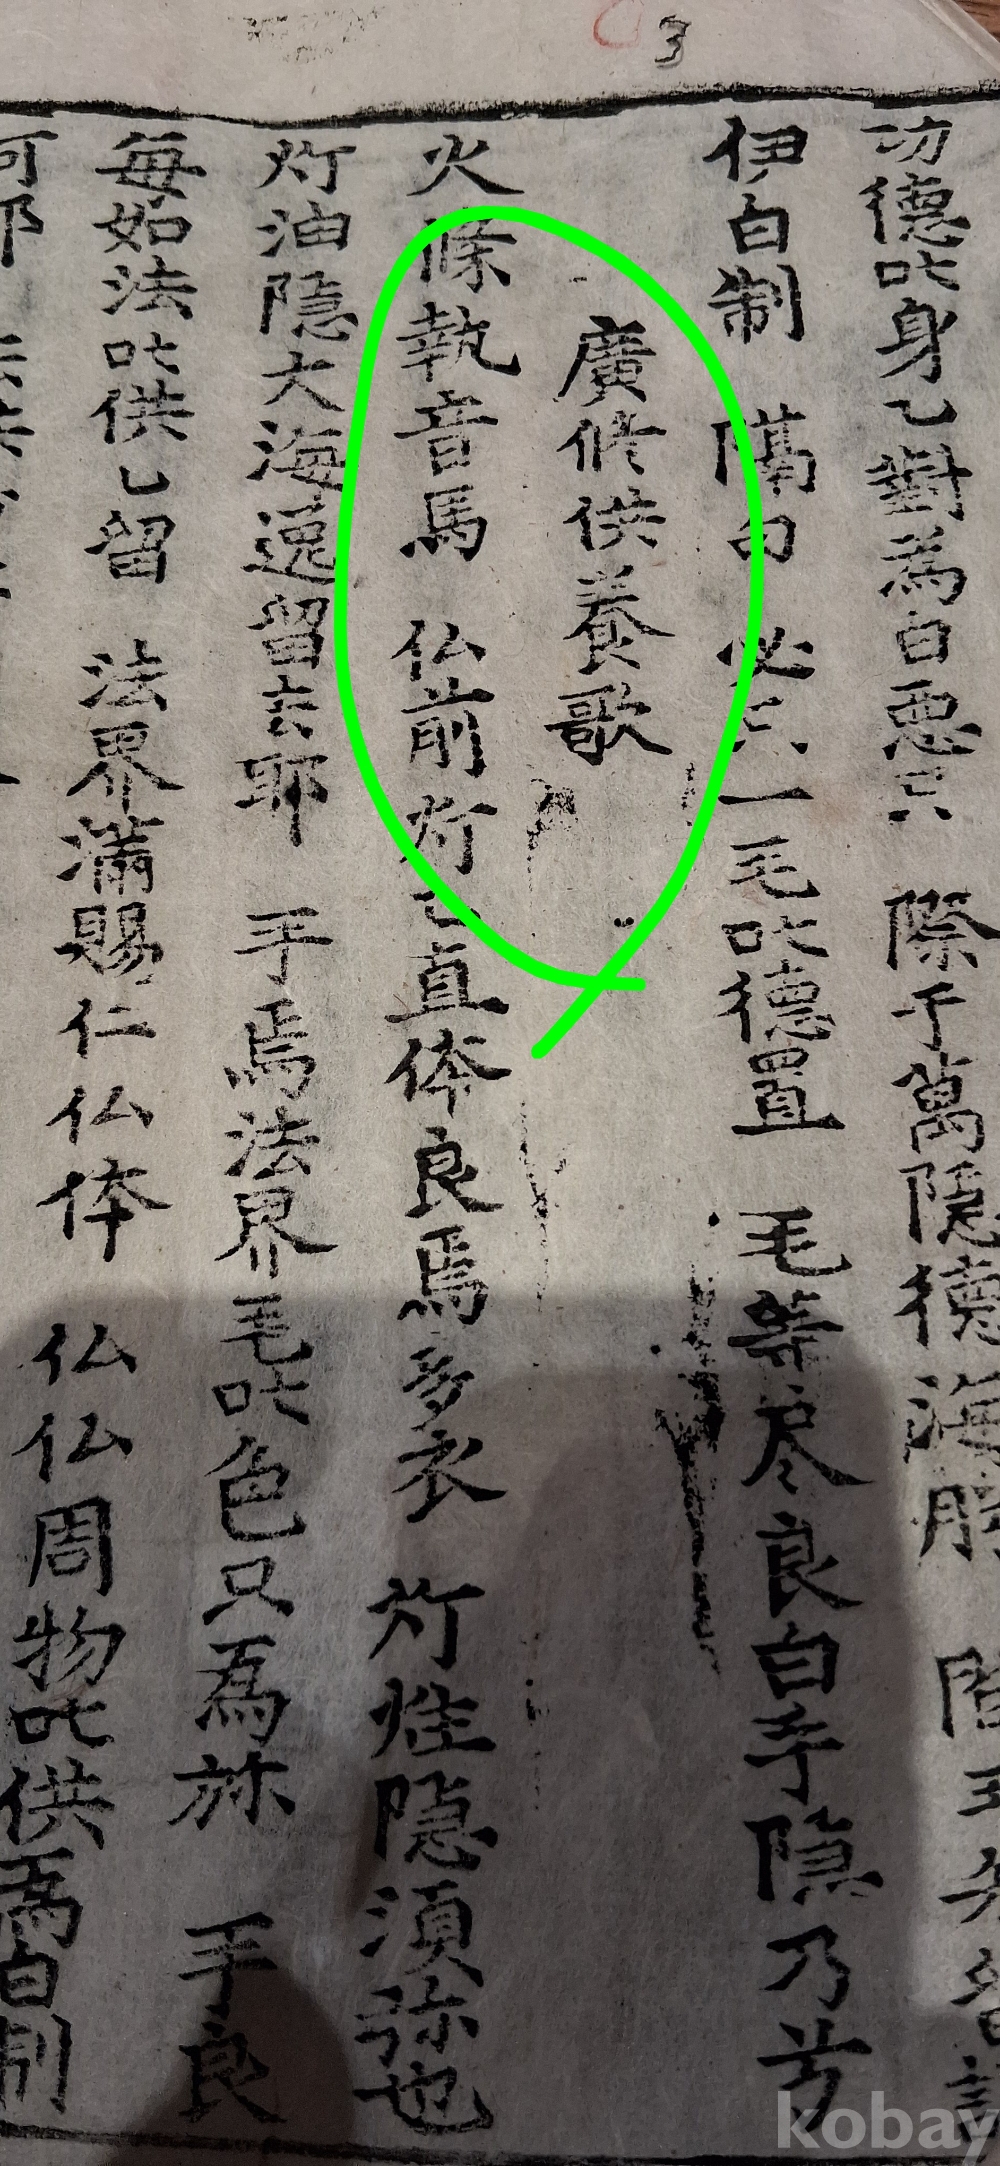 3
功德叱身乙對為白惡只 際于萬隐德海肹 間王
伊白制 隔句 必只一毛叱德置 毛等尽良白乎隐乃兮
廣修供養歌
火條執音馬 仏前灯乙直体良焉多衣 灯炷隐須弥也
灯油隐大海逸留去耶 手焉法界毛叱色只為旀 手良
每如法叱供乙留 法界滿賜仁仏体 仏仏周物叱供為白制
kobay